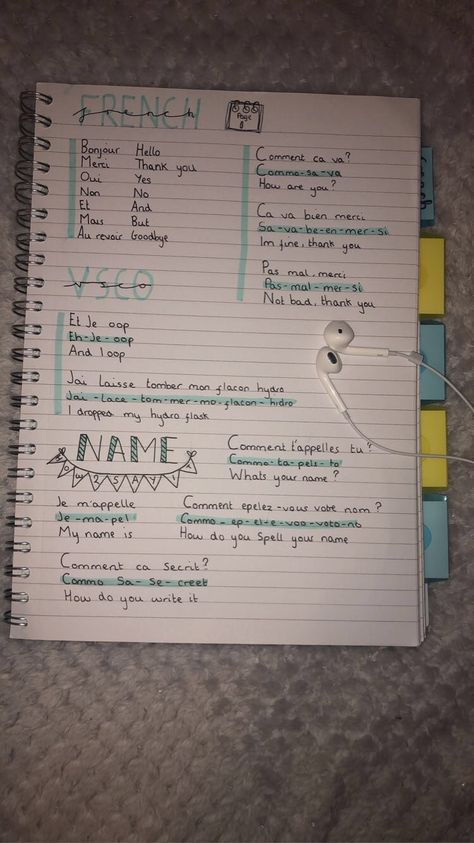 FRENCH
french
Page
Bonjour Hello
Merci Thank you
Oui Yes
Non No
Et And
Mais But
Au revoir Goodbye
Comment ca va?
Commo-sa-va
How are you?
Ca va bien merci
Sa-va-be-en-mer-si
Im fine, thank you
Pas mal, merci
Pas-mal-mer-si
Not bad, thank you
VSCO
vsco
Et Je oop
Eh-Je-oop
And I oop
Jai laisse tomber mon flacon hydro
Jai-lace-tom-mer-mo-flacon-hidro
I dropped my hydro flask
NAME
HOW 2 SAY IT
Comment t'appelles tu?
Commo-ta-pels-to
Whats your name?
Je m'appelle
Je-ma-pel
My name is
Comment epelez-vous votre nom?
Commo-ep-el-e-voo-voto-no
How do you Spell your name
Comment ca Secrit?
Commo Sa-Se-creet
How do you write it